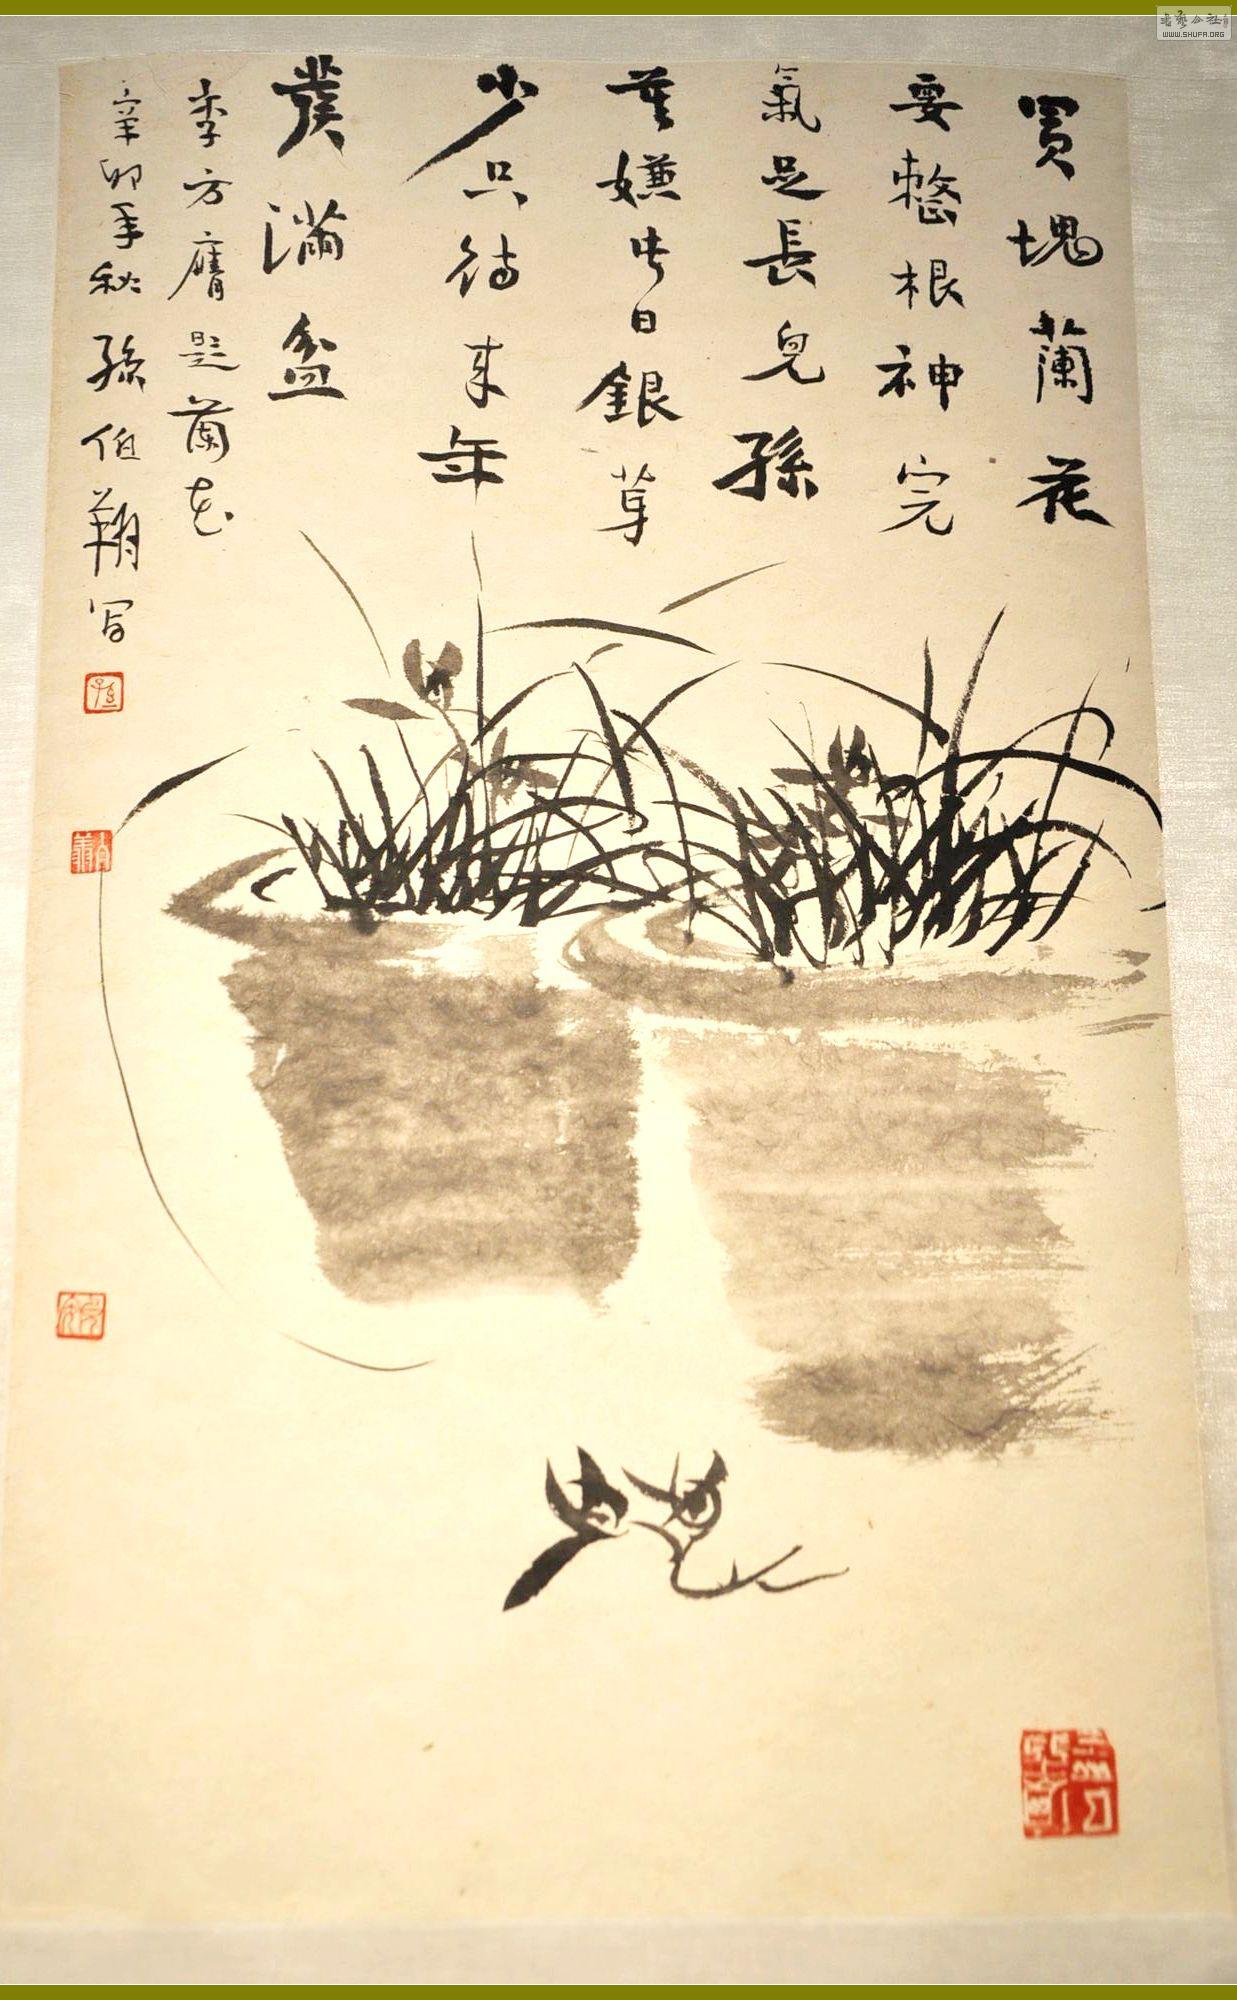 買塊蘭花
要整根神完
氣足長兒孫
莫嫌此日銀芽
少只待來年
發滿盆
李方膺題蘭花
辛卯年秋孫伯翔写
書藝公社
WWW.SHUFA.ORG